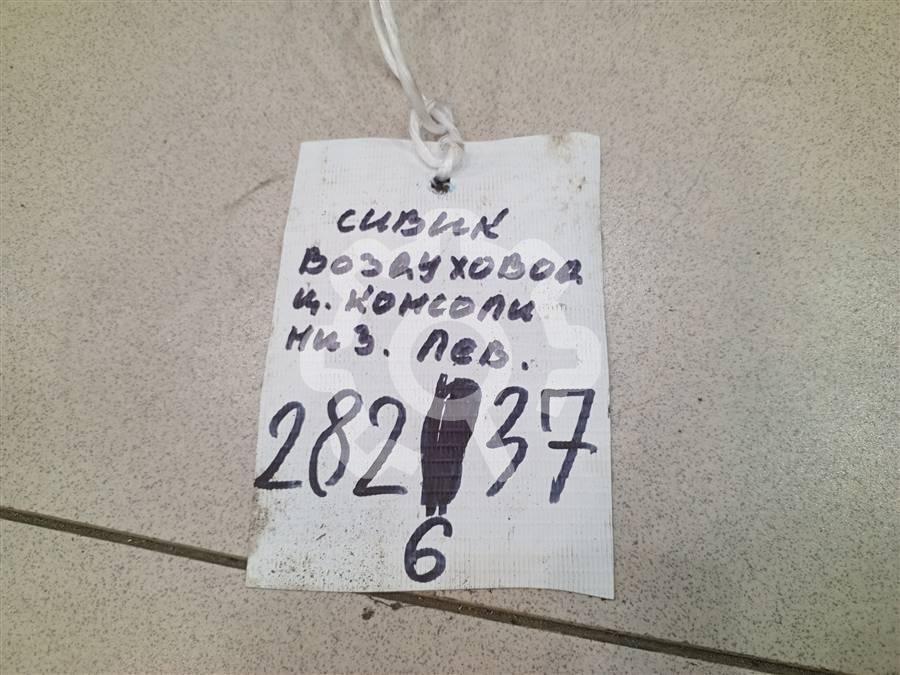 СИВИК
ВОЗДУХОВОД
Ц. КОНСОЛИ
НИЗ. ЛЕВ.
282 37
6